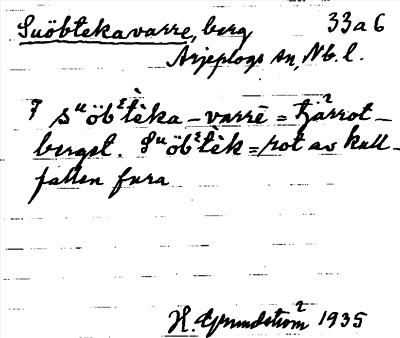 Suöbtekavarre, berg 33a6
Arjeplogs sn, Nb. l.
7 sᵘöbᵉtèka-varrē = tjärrot-
berget. Sᵘöbᵉtèk = rot av kull-
fallen fura
H. Grundström 1935